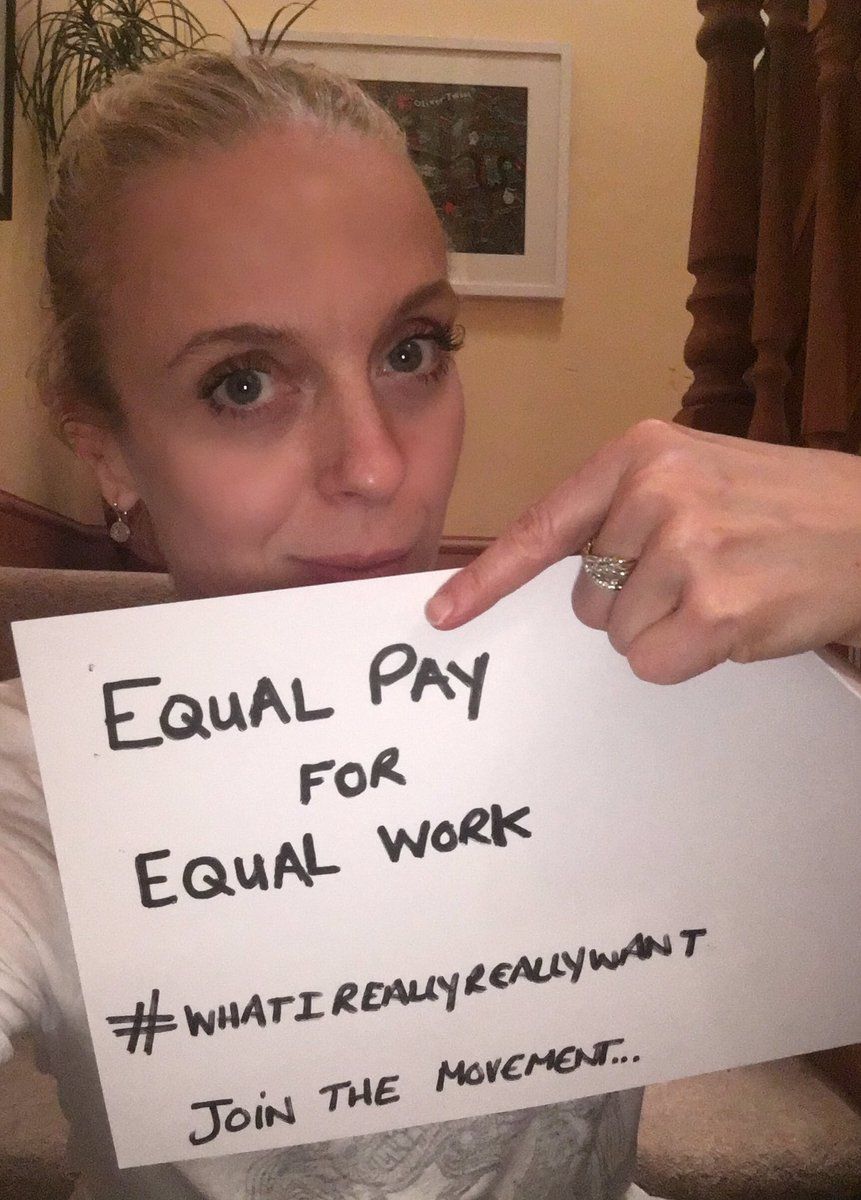 Oliver Twist
EQUAL PAY
FOR
EQUAL WORK
#WHATIREALLYREALLYWANT
JOIN THE MOVEMENT...